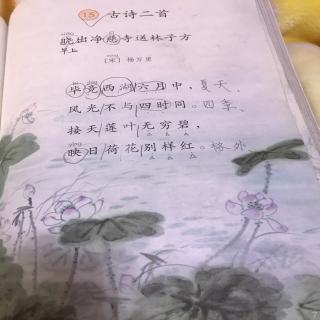 15 古诗二首
晓出净慈寺送林子方
早上
[宋] 杨万里
毕竟西湖六月中，夏天
风光不与四时同。四季
接天莲叶无穷碧，
映日荷花别样红。格外